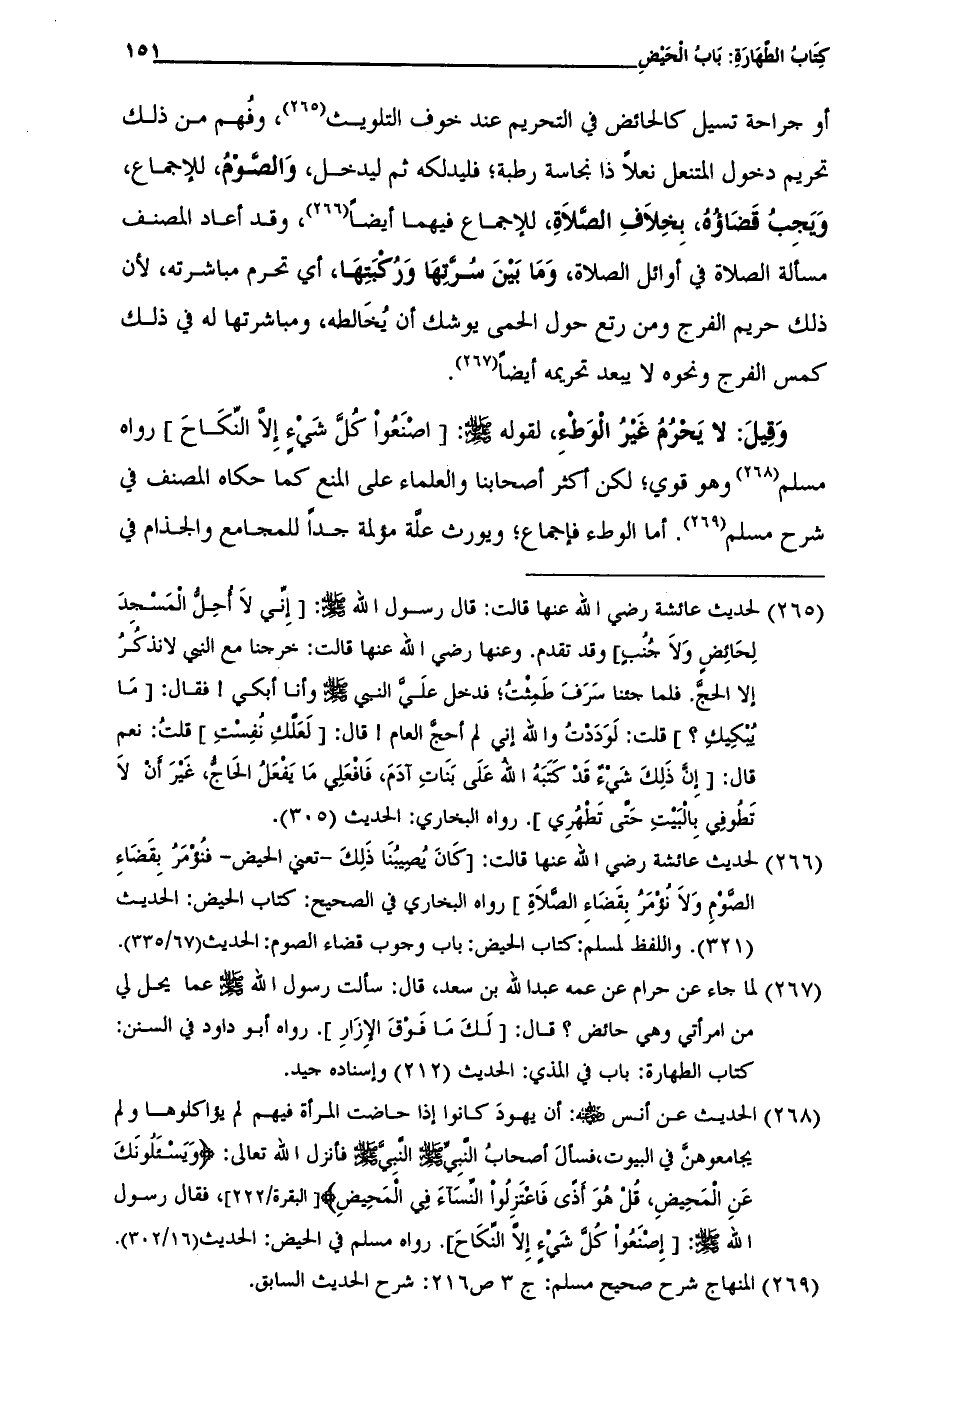 كِتَابُ الطَّهَارَةِ: بَابُ الْحَيْضِ ١٥١
أو جراحة تسيل كالحائض في التحريم عند خوف التلويث(٢٦٥)، وفُهم من ذلك
تحريم دخول المتنعل نعلاً ذا نجاسة رطبة؛ فليدلكه ثم ليدخل، وَالصَّوْمُ، للإجماع،
وَيَجِبُ قَضَاؤُهُ، بِخِلاَفِ الصَّلاَةِ، للإجماع فيهما أيضاً(٢٦٦)، وقد أعاد المصنف
مسألة الصلاة في أوائل الصلاة، وَمَا بَيْنَ سُرَّتِهَا وَرُكْبَتِهَا، أي تحرم مباشرته، لأن
ذلك حريم الفرج ومن رتع حول الحمى يوشك أن يُخَالطه، ومباشرتها له في ذلك
كمس الفرج ونحوه لا يبعد تحريمه أيضاً(٢٦٧).
وَقِيلَ: لا يَحْرُمُ غَيْرُ الْوَطْءِ، لقوله ﷺ: [ اصْنَعُواْ كُلَّ شَيْءٍ إِلاَّ النِّكَاحَ ] رواه
مسلم(٢٦٨) وهو قوي؛ لكن أكثر أصحابنا والعلماء على المنع كما حكاه المصنف في
شرح مسلم(٢٦٩). أما الوطء فإجماع؛ ويورث علَّة مؤلمة جداً للمجامع والجذام في
(٢٦٥) لحديث عائشة رضي الله عنها قالت: قال رسول الله ﷺ: [ إِنِّي لاَ أُحِلُّ الْمَسْجِدَ
لِحَائِضٍ وَلاَ جُنُبٍ] وقد تقدم. وعنها رضي الله عنها قالت: خرجنا مع النبي لانذكُرُ
إلا الحجَّ. فلما جئنا سَرَفَ طَمِثْتُ؛ فدخل علَيَّ النبي ﷺ وأنا أبكي ! فقال: [ مَا
يُبْكِيكِ ؟ ] قلت: لَوَدَدْتُ والله إني لم أحجَّ العام ! قال: [ لَعَلَّكِ نُفِسْتِ ] قلتُ: نعم
قال: [ إِنَّ ذَلِكَ شَيْءٌ قَدْ كَتَبَهُ اللهُ عَلَى بَنَاتِ آدَمَ، فَافْعَلِي مَا يَفْعَلُ الحَاجُّ، غَيْرَ أَنْ لاَ
تَطُوفِي بِالْبَيْتِ حَتَّى تَطْهُرِي ]. رواه البخاري: الحديث (٣٠٥).
(٢٦٦) لحديث عائشة رضي الله عنها قالت: [كَانَ يُصِيبُنَا ذَلِكَ -تعني الحيض- فَنُؤْمَرُ بِقَضَاءِ
الصَّوْمِ وَلاَ نُؤْمَرُ بِقَضَاءِ الصَّلاَةِ ] رواه البخاري في الصحيح: كتاب الحيض: الحديث
(٣٢١). واللفظ لمسلم:كتاب الحيض: باب وجوب قضاء الصوم: الحديث(٣٣٥/٦٧).
(٢٦٧) لما جاء عن حرام عن عمه عبدالله بن سعد، قال: سألت رسول الله ﷺ عما يحل لي
من امرأتي وهي حائض ؟ قال: [ لَكَ مَا فَوْقَ الإِزَارِ ]. رواه أبو داود في السنن:
كتاب الطهارة: باب في المذي: الحديث (٢١٢) وإسناده جيد.
(٢٦٨) الحديث عن أنس ﷺ: أن يهودَ كانوا إذا حاضت المرأة فيهم لم يؤاكلوها ولم
يجامعوهنَّ في البيوت،فسألَ أصحابُ النَّبِيِّﷺ النَّبِيَّﷺ فأنزل الله تعالى: ﴿وَيَسْئَلُونَكَ
عَنِ الْمَحِيضِ، قُلْ هُوَ أَذًى فَاعْتَزِلُواْ النِّسَآءَ فِي الْمَحِيضِ﴾[ البقرة/٢٢٢]، فقال رسول
الله ﷺ: [ إِصْنَعُواْ كُلَّ شَيْءٍ إِلاَّ النِّكَاحَ]. رواه مسلم في الحيض: الحديث(٣٠٢/١٦).
(٢٦٩) المنهاج شرح صحيح مسلم: ج ٣ ص٢١٦: شرح الحديث السابق.